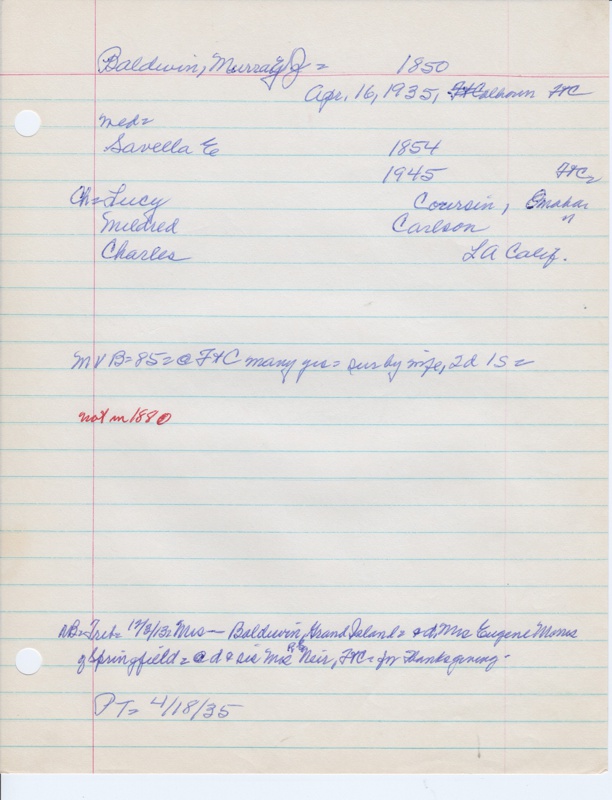 Baldwin, Murray J = 1850
Apr. 16, 1935, Ft Calhoun FtC
Med=
Savella E 1854
1945 FtC=
Ch= Lucy Coursin, Omaha
Mildred Carlson
Charles LA Calif.
M V B= 85= @ FtC many yrs= sur by wife, 2d 1s=
not in 1880
NB= Trib= 12/3/13= Mrs — Baldwin, Grand Island= & d, Mrs Eugene Morris
of Springfield= @ d & sis Mrs Neir, FtC= for Thanksgiving-
PT= 4/18/35